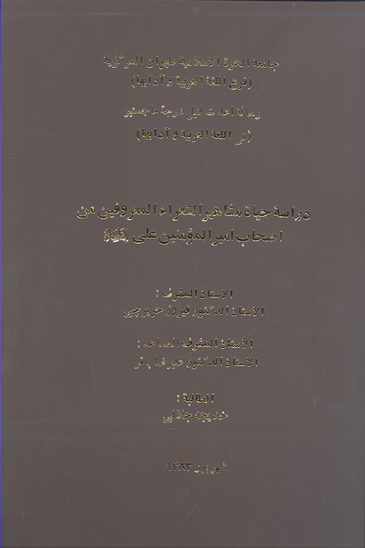 جامعة الحرة الاسلامية طهران المركزية
(فرع اللغة العربية و آدابها)
رسالة اعدت لنيل درجة ماجستير
(في اللغة العربية و آدابها)
دراسة حياة مشاهير الشعراء المعروفين من
اصحاب امير المؤمنين علي
الاستاذ المشرف :
الاستاذ الدكتور فيروز حريرچي
الاستاذ المشرف المساعد :
الاستاذ الدكتور عليرضا باقر
الطالبة :
خديجه جلالي
شهريور ۱۳۸۳